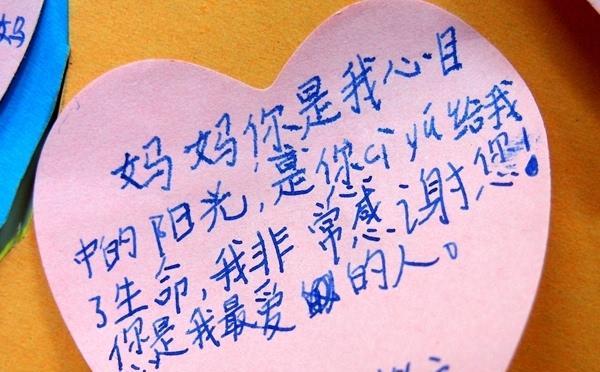 妈
妈妈你是我心目
中的阳光,是你cì yǔ给我
了生命,我非常感谢您!
您是我最爱的人。